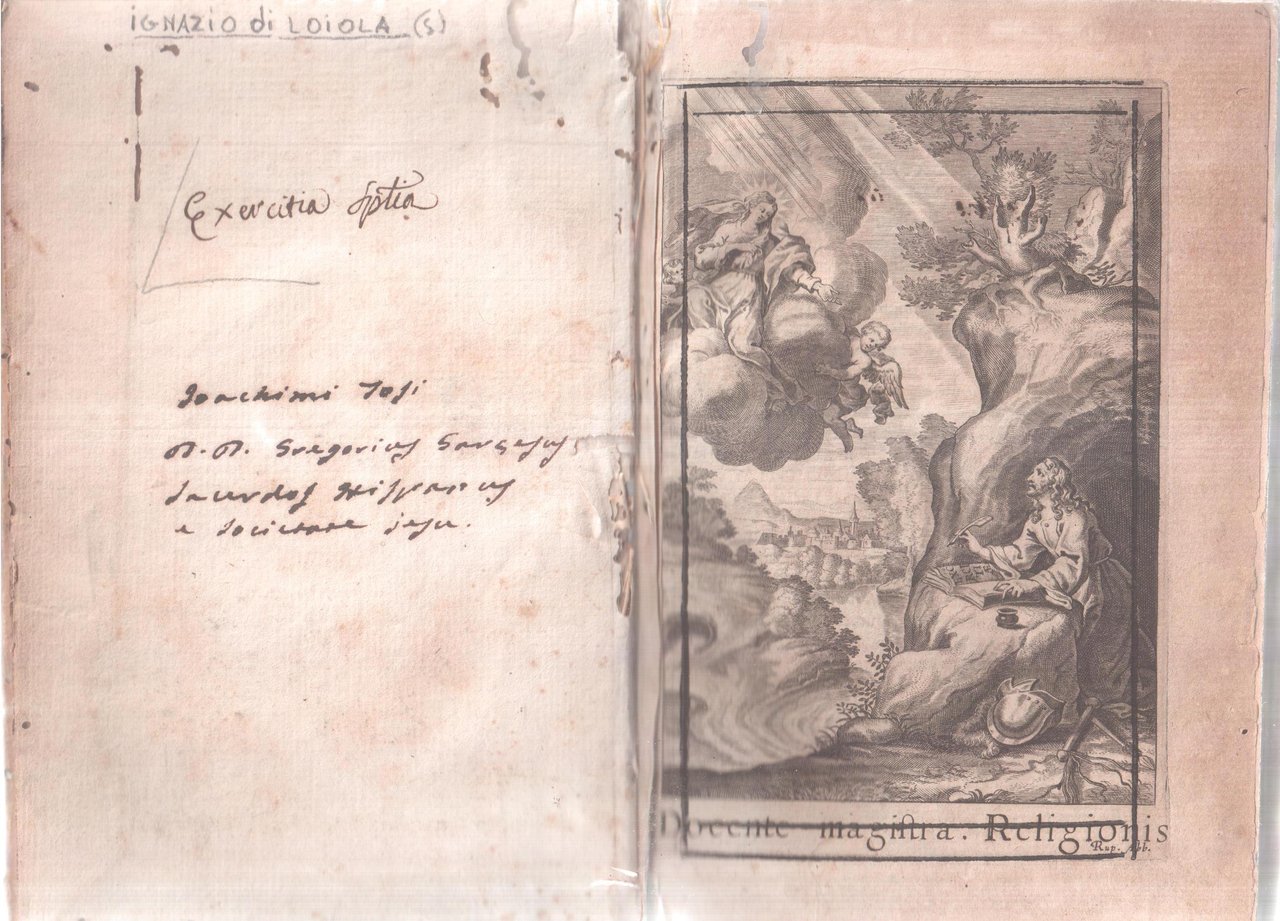 IGNAZIO di LOIOLA (S)
Exercitia Sptia
Joachimi Josi
R. R. Gregorius
Sacerdos Hispanus
e Societate jesu.
Docente magiſtra. Religionis
Rup. Abb.